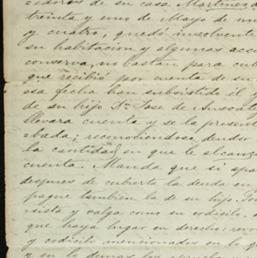 cidores de su casa Martinez d
treinta y uno de Mayo de mi
y cuatro, quedó insolvente
su habitacion y algunas acc
conserva, no bastan para cub
que recibió por cuenta de su
esa fecha han subsistido él
de su hijo Dn Jose de
llevara cuenta y se la present
bada; reconociendose deudor
la cantidad en que le alcanza
cuenta. Manda que si
despues de cubierta la deuda en
pague tambien la de su hijo.
sista y valga como su codicilo,
que haya lugar en derecho;
y codicilo mencionados en lo q
y en lo demas los